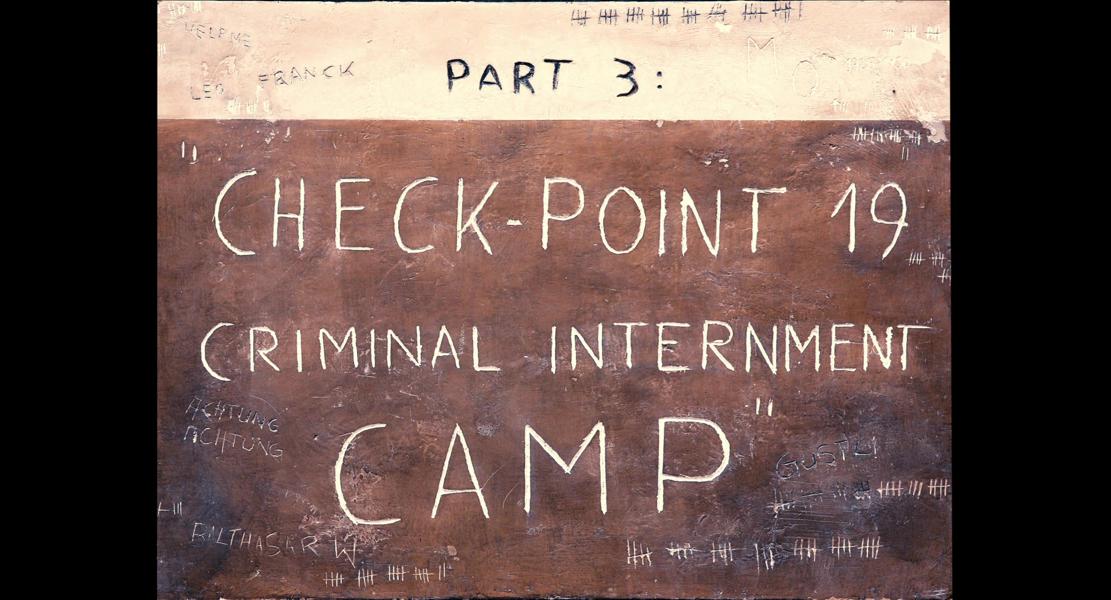 HELP ME
LEO FRANCK
PART 3:
"CHECK-POINT 19
CRIMINAL INTERNMENT
CAMP"
ACHTUNG
ACHTUNG
GUSTLI
BALTHASAR W